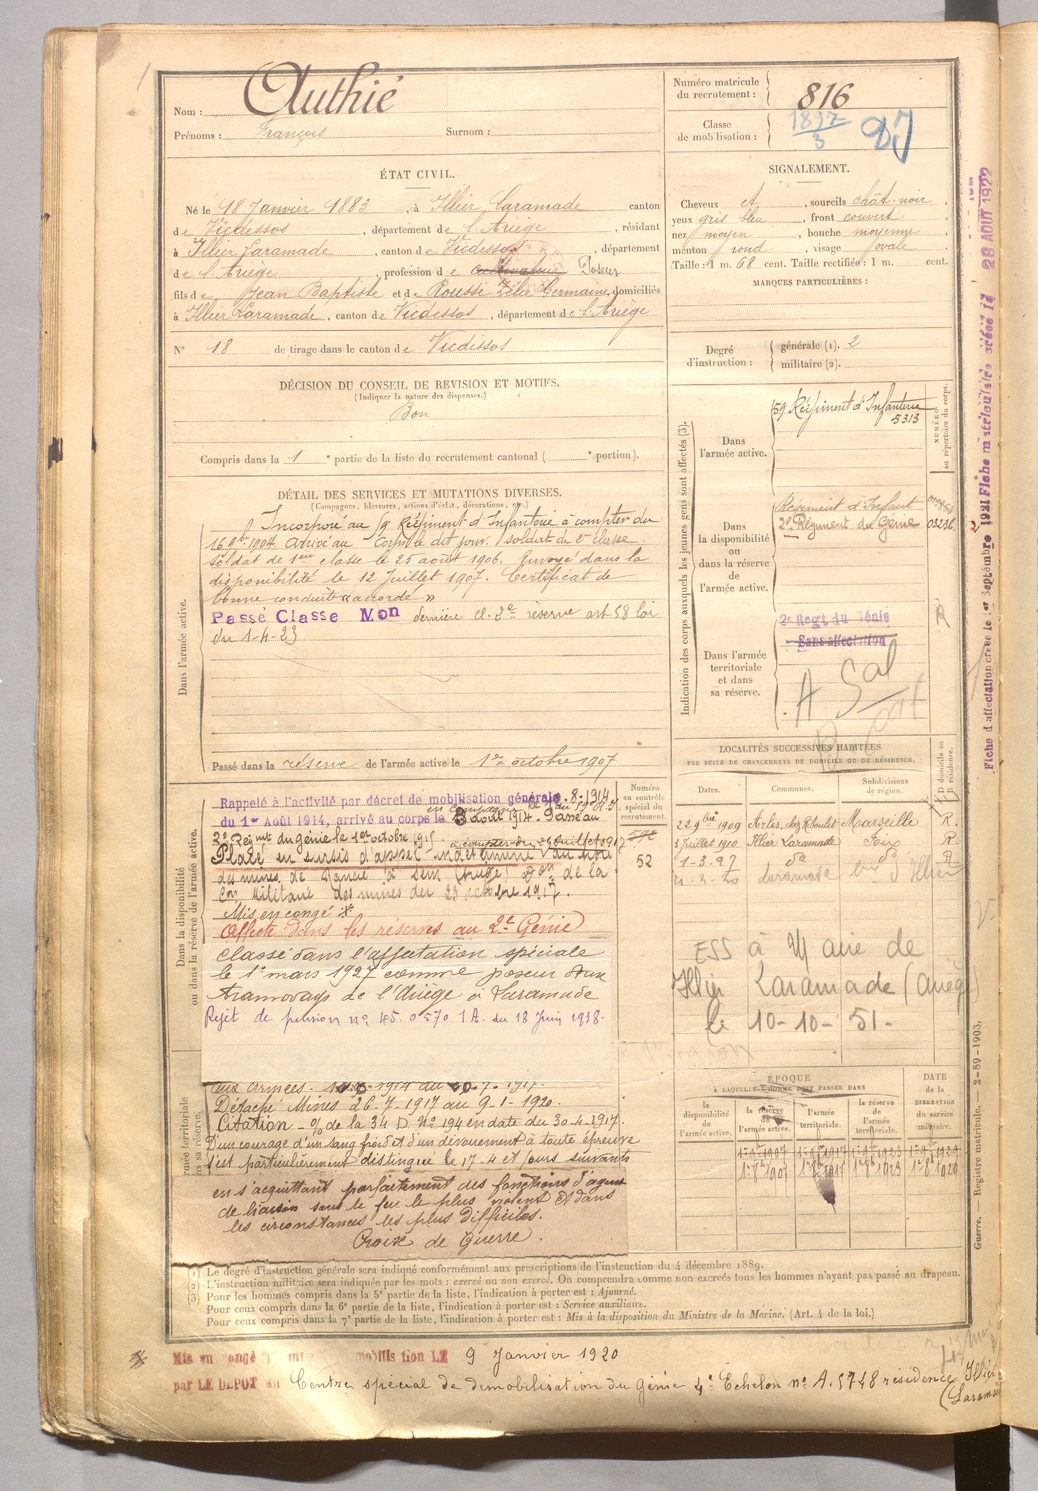 Nom : Authié
Prénoms : François Surnom :
Numéro matricule
du recrutement : 816
Classe
de mobilisation : 1897
3
ÉTAT CIVIL.
Né le 18 Janvier 1883, à Illier Laramade canton
de Vicdessos, département de l'Ariège, résidant
à Illier Laramade, canton de Vicdessos, département
de l'Ariège, profession de cultivateur Poseur
fils de Jean Baptiste et de Rousse Zélie Germaine, domiciliés
à Illier Laramade, canton de Vicdessos, département de l'Ariège
N° 18 de tirage dans le canton de Vicdessos
SIGNALEMENT.
Cheveux et, sourcils chât. noir,
yeux gris bleu, front couvert,
nez moyen, bouche moyenne,
menton rond, visage ovale
Taille : 1 m. 68 cent. Taille rectifiée : 1 m. cent.
MARQUES PARTICULIÈRES :
Degré
d'instruction :
générale (1). 2
militaire (2).
DÉCISION DU CONSEIL DE REVISION ET MOTIFS.
(Indiquer la nature des dispenses.)
Bon
Compris dans la 1° partie de la liste du recrutement cantonal ( ° portion).
DÉTAIL DES SERVICES ET MUTATIONS DIVERSES.
(Campagnes, blessures, actions d'éclat, décorations, etc.)
Dans l'armée active.
Incorporé au 59 Régiment d'Infanterie à compter du
16 9bre 1904. Arrivé au Corps le dit jour. soldat de 2e classe.
Soldat de 1ère classe le 25 août 1906. Envoyé dans la
disponibilité le 12 Juillet 1907. Certificat de
bonne conduite "accordé"
Passé Classe Mon dernière cl. 2e réserve art 58 loi
du 1-4-23
Passé dans la réserve de l'armée active le 1er octobre 1907
Indication des corps auxquels les jeunes gens sont affectés (3).
NUMÉRO
au répertoire du corps.
Dans
l'armée active.
59 Régiment d'Infanterie
5313
Dans
la disponibilité
ou
dans la réserve
de
l'armée active.
Régiment d'Infant
2e Régiment du Génie
Dans l'armée
territoriale
et dans
sa réserve.
2e Regt du Génie
Sans affectation
A Sal
R
Fiche d'affectation créée le 1er Septembre 1921 Fiche matriculaire créée le 28 AOUT 1922
Dans la disponibilité
ou dans la réserve de l'armée active.
Numéro
au contrôle
spécial du
recrutement.
52
Rappelé à l'activité par décret de mobilisation générale
du 1er Août 1914, arrivé au corps le 3 août 1914. Passé au
2e Reg.mt du génie le 1er octobre 1915
Placé en sursis d'appel indéterminé au titre
des mines de
Con militaire des mines du 23 octobre 1917.
Mis en congé *
Affecté dans les réserves au 2e Génie
Classé dans l'affectation spéciale
le 1er mars 1927 comme poseur aux
tramways de l'Ariège à Laramade
Rejet de pension n° 45.0570 1A. du 18 Juin 1938.
aux armées. 1914 au 20-7-1917.
Détaché Mines 26-7-1917 au 9-1-1920.
Citation - o/ de la 34 D N° 194 en date du 30-4-1917.
D'un courage d'un sang froid et d'un dévouement à toute épreuve
s'est particulièrement distingué le 17-4 et jours suivants
en s'acquittant parfaitement des fonctions d'agent
de liaison sous le feu le plus violent et dans
les circonstances les plus difficiles.
Croix de Guerre.
LOCALITÉS SUCCESSIVES HABITÉES
PAR SUITE DE CHANGEMENTS DE DOMICILE OU DE RÉSIDENCE.
Dates. Communes. Subdivisions
de région. D domicile ou
R résidence.
22 9bre 1909 Arles, chez Roulet Marseille R.
Juillet 1910 Illier Laramade Foix R.
1-3-27 do do R
4-3-30 Laramade
ESS à Mairie de
Illier Laramade (Ariège)
le 10-10-51-
ÉPOQUE
À LAQUELLE L'HOMME DOIT PASSER DANS
la
disponibilité
de
l'armée active.
la réserve
de
l'armée active.
l'armée
territoriale.
la réserve
de
l'armée
territoriale.
DATE
de la
LIBÉRATION
du service
militaire.
Guerre. — Registre matricule. — 2-89-1903.
(1) Le degré d'instruction générale sera indiqué conformément aux prescriptions de l'instruction du 4 décembre 1889.
(2) L'instruction militaire sera indiquée par les mots : exercé ou non exercé. On comprendra comme non exercés tous les hommes n'ayant pas passé au drapeau.
(3) Pour les hommes compris dans la 5e partie de la liste, l'indication à porter est : Ajourné.
Pour ceux compris dans la 6e partie de la liste, l'indication à porter est : Service auxiliaire.
Pour ceux compris dans la 7e partie de la liste, l'indication à porter est : Mis à la disposition du Ministre de la Marine. (Art. 4 de la loi.)
Mis en congé LE 9 Janvier 1920
par LE DEPOT Centre spécial de démobilisation du Génie 4e Echelon n° A.5748 résidence Illier
(Laramade